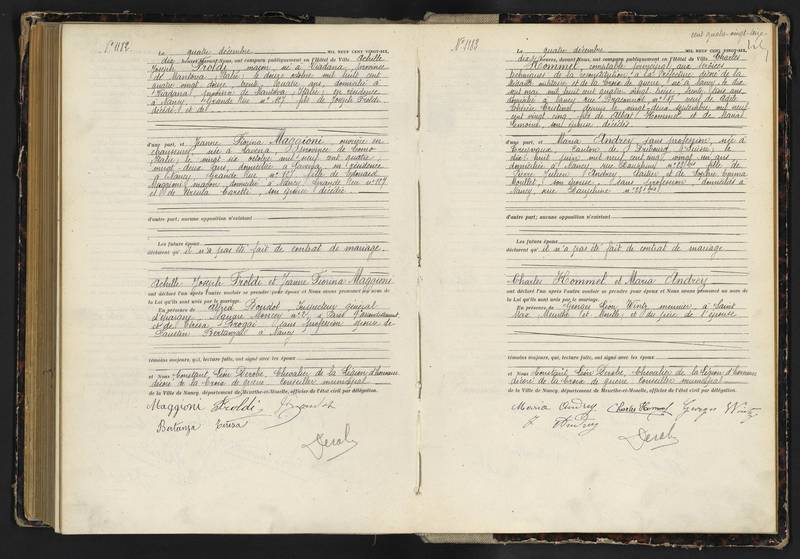 N° 1182
Le quatre décembre MIL NEUF CENT VINGT-SIX,
dix heures devant Nous, ont comparu publiquement en l'Hôtel de Ville Achille
Joseph Froldi maçon, né à Viadana, province
de Mantova, Italie, le douze octobre mil huit cent
quatre vingt douze, trente quatre ans, domicilié à
Viadana province de Mantova Italie, en résidence
à Nancy, Grande Rue n° 117 fils de Joseph Froldi
décédé, et de
d'une part, et Jeanne Fiorina Maggioni ouvrière en
chaussures née à Lavena province de Como
Italie, le vingt six octobre mil neuf cent quatre,
vingt deux ans, domiciliée à Lavena, en résidence
à Nancy Grande Rue n° 117 fille de Edouard
Maggioni maçon, domicilié à Nancy Grande Rue n° 117
et de Ursula son épouse décédée
d'autre part; aucune opposition n'existant
Les futurs époux
déclarent qu'il n'a pas été fait de contrat de mariage.
Achille Joseph Froldi et Jeanne Fiorina Maggioni
ont déclaré l'un après l'autre vouloir se prendre pour époux et Nous avons prononcé au nom de
la Loi qu'ils sont unis par le mariage.
En présence de Alfred Inspecteur général
d'épargne, Square Moncey n° à Paris
et de Térésa Brogai sans profession épouse de
Faustin Bertanza à Nancy
témoins majeurs, qui, lecture faite, ont signé avec les époux
et Nous Constant Léon Derobe, Chevalier de la Légion d'honneur
décoré de la Croix de guerre Conseiller municipal
de la Ville de Nancy, département de Meurthe-et-Moselle, officier de l'état civil par délégation.
Maggioni Froldi
Bertanza
Derobe
cent quatre-vingt-onze
N° 1183
Le quatre décembre MIL NEUF CENT VINGT-SIX,
dix heures, devant Nous, ont comparu publiquement en l'Hôtel de Ville Charles
Hommel comptable aux services
techniques de la à la Préfecture décoré de la
Médaille militaire et de la Croix de guerre né à Nancy, le dix
mil huit cent quatre vingt treize, trente trois ans
domicilié à Nancy rue n° 17
depuis le vingt deux septembre mil neuf
cent vingt cinq, fils de Hommel et de Maria
son épouse, décédés
d'une part, et Maria Andrey sans profession, née à
Canton de Fribourg Suisse, le
dix huit juin mil neuf cent cinq vingt un ans
domiciliée à Nancy, rue Dauphine n° fille de
Pierre Julien Andrey, laitier et de Emma
son épouse, sans profession domiciliés à
Nancy, rue Dauphine n°
d'autre part; aucune opposition n'existant
Les futurs époux
déclarent qu'il n'a pas été fait de contrat de mariage
Charles Hommel et Maria Andrey
ont déclaré l'un après l'autre vouloir se prendre pour époux et Nous avons prononcé au nom de
la Loi qu'ils sont unis par le mariage.
En présence de Georges Léon Wirtz menuisier, à Saint
Max Meurthe et Moselle et du père de l'épouse
témoins majeurs, qui, lecture faite, ont signé avec les époux
et Nous Constant Léon Derobe, Chevalier de la Légion d'honneur
décoré de la Croix de guerre Conseiller municipal
de la Ville de Nancy, département de Meurthe-et-Moselle, officier de l'état civil par délégation.
Maria Andrey Charles Hommel Georges Wirtz
J Andrey
Derobe